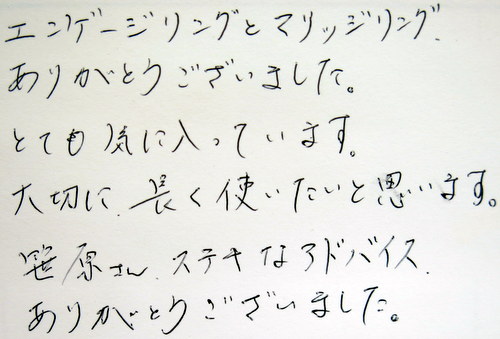 エンゲージリングとマリッジリング、
ありがとうございました。
とても気に入っています。
大切に、長く使いたいと思います。
笹原さん、ステキなアドバイス、
ありがとうございました。